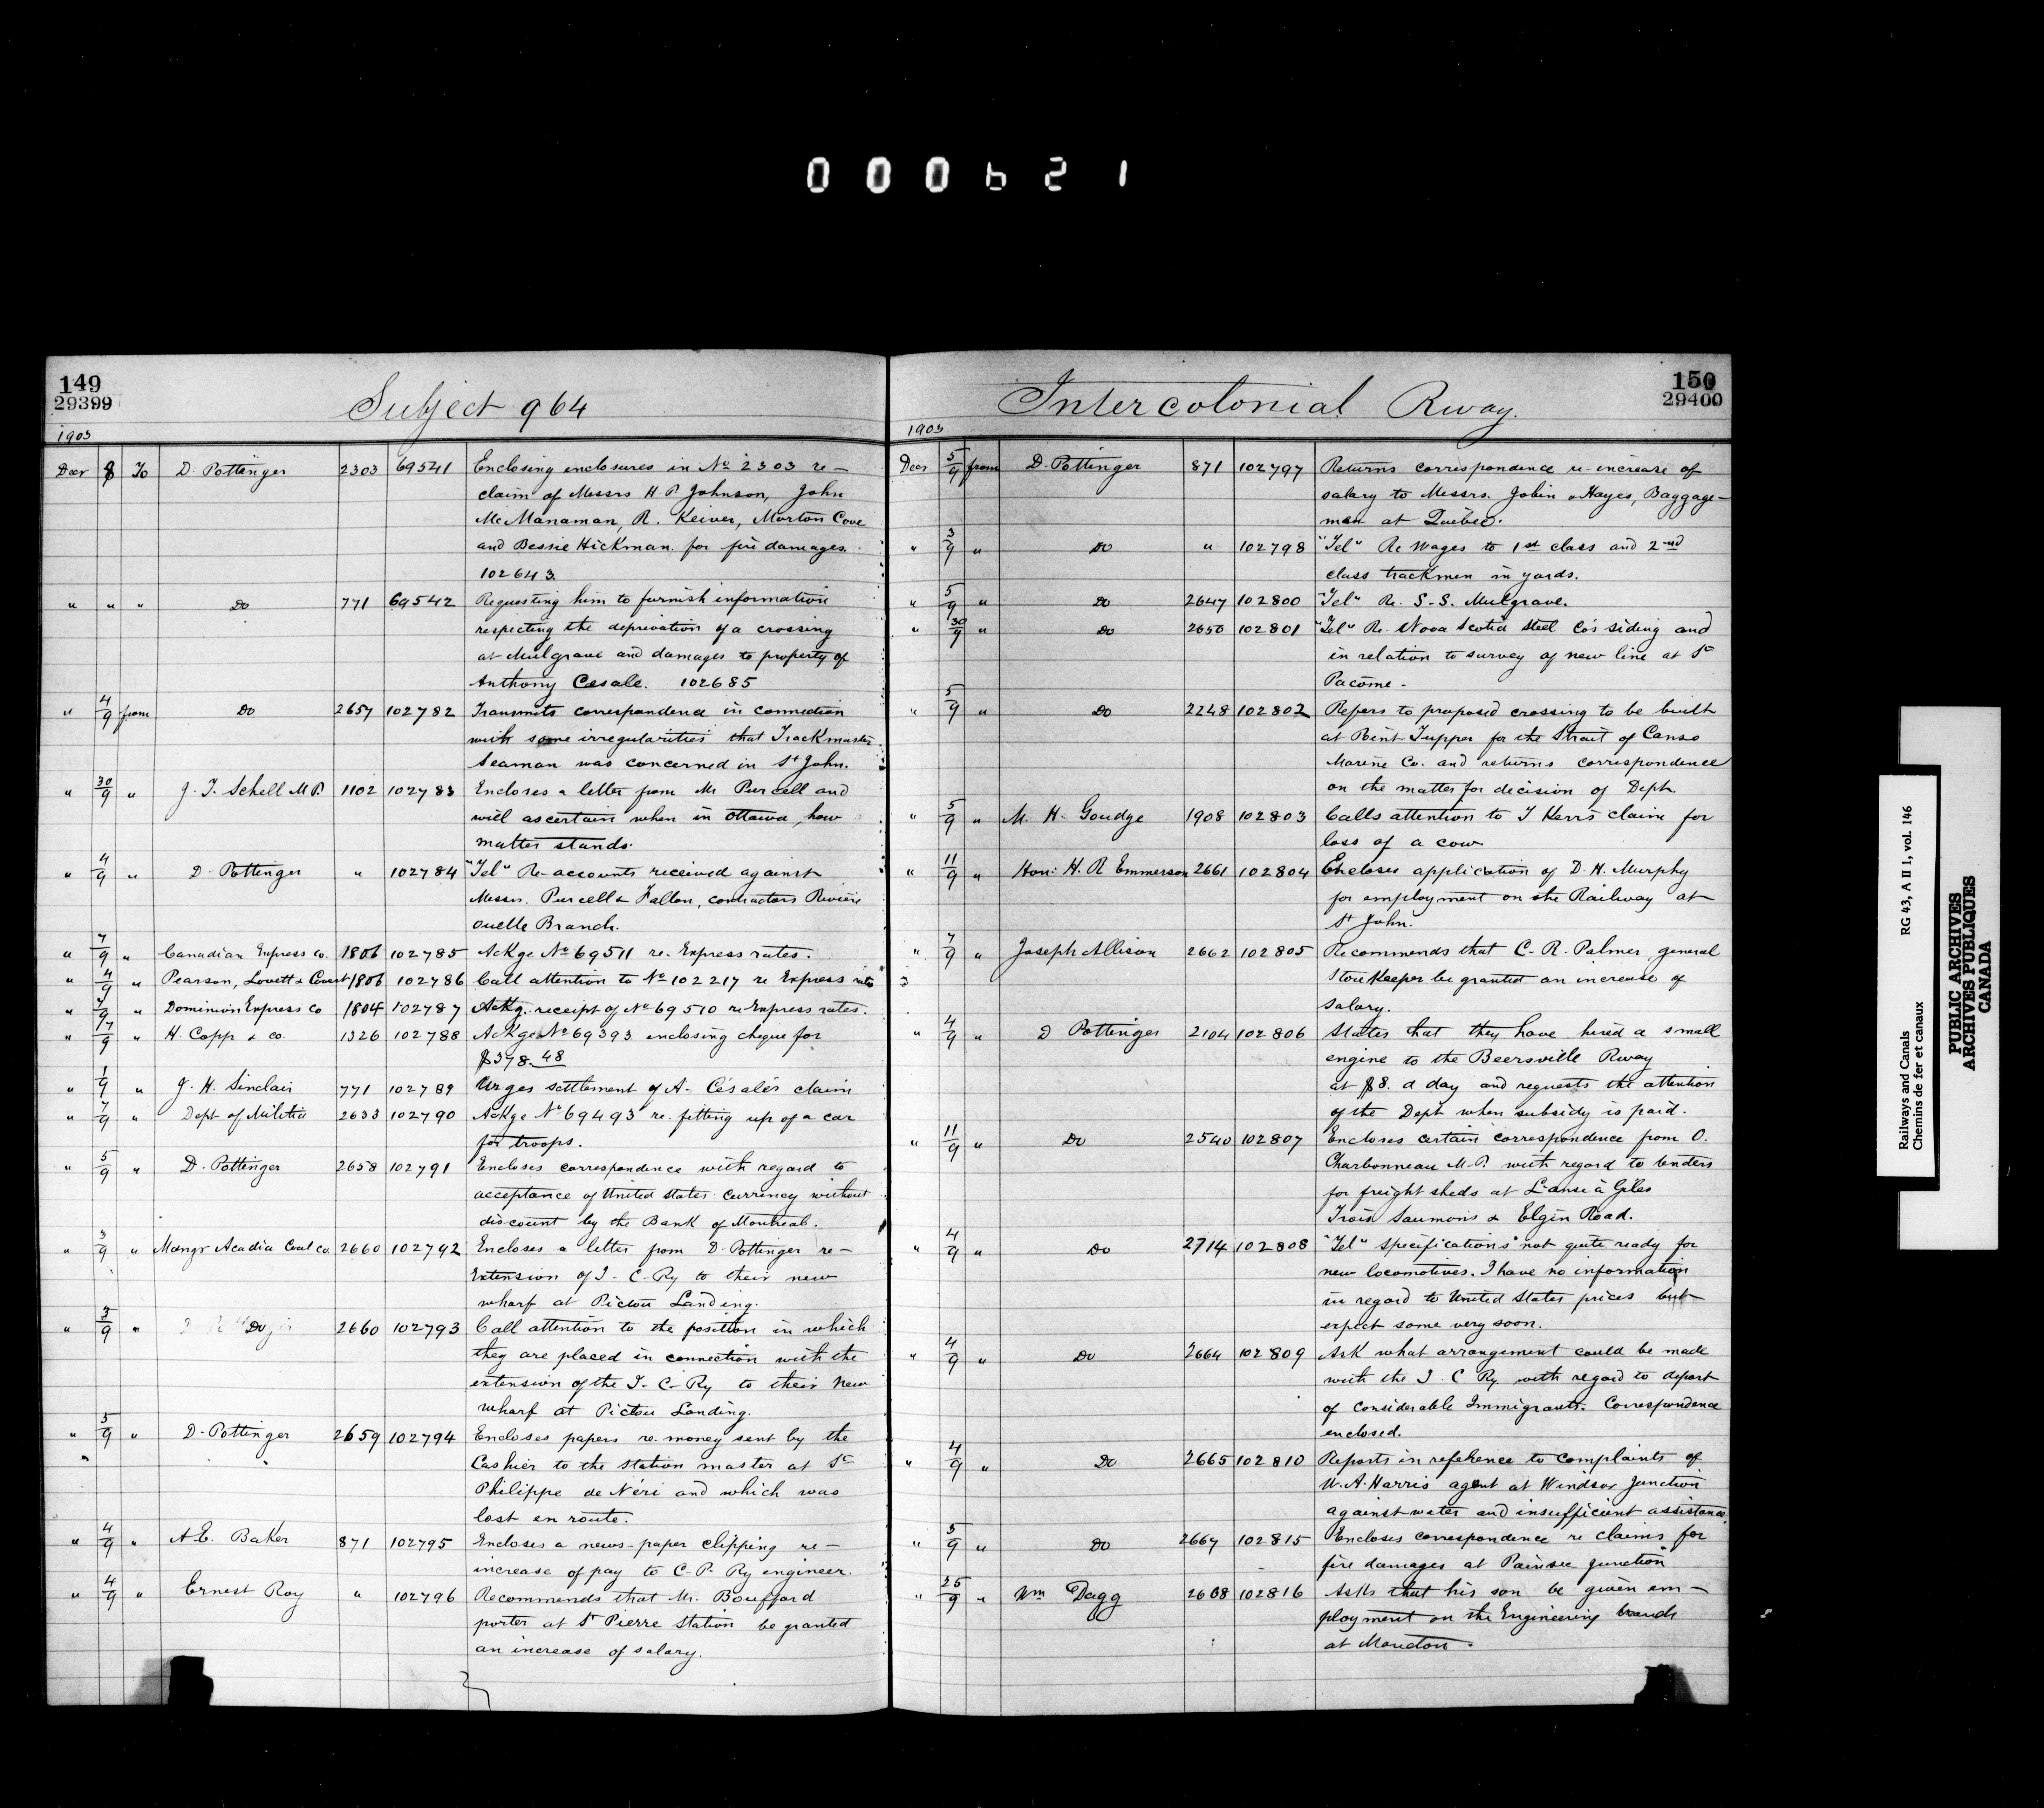 000621
149
29399
Subject 964
1903
Decr 8 To D. Pottinger 2303 69541 Enclosing enclosures in No 2303 re-
claim of Messrs H. P. Johnson, John
McManaman, R. Keiver, Morton Cove
and Bessie Hickman for fire damages.
102643.
" " " Do 771 69542 Requesting him to furnish information
respecting the deprivation of a crossing
at Mulgrave and damages to property of
Anthony Cesale. 102685
" 4/9 from Do 2657 102782 Transmits correspondence in connection
with some irregularities that Trackmaster
Seaman was concerned in St John.
" 30/9 " J. T. Schell M.P. 1102 102783 Encloses a letter from Mr Purcell and
will ascertain when in Ottawa, how
matter stands.
" 4/9 " D. Pottinger " 102784 "Tel" Re accounts received against
Messrs. Purcell & Fallon, contractors Rivière
Ouelle Branch.
" 7/9 " Canadian Express Co. 1806 102785 Ackge No 69511 re. Express rates.
" 4/9 " Pearson, Lovett & Covert 1806 102786 Call attention to No 102217 re Express rates
" 7/9 " Dominion Express Co 1804 102787 Ackg. receipt of No 69510 re Express rates.
" 17/9 " H. Copp & co. 1326 102788 Ackge No 69393 enclosing cheque for
$398.48
" 1/9 " J. H. Sinclair 771 102789 Urges settlement of A. Césale's claim
" 7/9 " Dept of Militia 2633 102790 Ackge No 69493 re. fitting up of a car
for troops.
" 5/9 " D. Pottinger 2658 102791 Encloses correspondence with regard to
acceptance of United States currency without
discount by the Bank of Montreal.
" 3/9 " Mangr Acadia Coal Co. 2660 102792 Encloses a letter from D. Pottinger re-
Extension of I. C. Ry to their new
wharf at Pictou Landing.
" 3/9 " Do 2660 102793 Call attention to the position in which
they are placed in connection with the
extension of the I. C. Ry to their new
wharf at Pictou Landing.
" 5/9 " D. Pottinger 2659 102794 Encloses papers re. money sent by the
Cashier to the station master at St
Philippe de Néri and which was
lost en route.
" 4/9 " A. E. Baker 871 102795 Encloses a news-paper clipping re-
increase of pay to C. P. Ry engineer.
" 4/9 " Ernest Roy " 102796 Recommends that Mr. Bouffard
porter at St Pierre Station be granted
an increase of salary.
150
29400
Intercolonial Rway.
1903
Decr 5/9 from D. Pottinger 871 102797 Returns correspondence re increase of
salary to Messrs. Jobin & Hayes, Baggage-
men at Quebec.
" 3/9 " Do " 102798 "Tel" Re Wages to 1st class and 2nd
class trackmen in yards.
" 5/9 " Do 2647 102800 "Tel" Re. S.S. Mulgrave.
" 30/9 " Do 2650 102801 "Tel" Re. Nova Scotia Steel Co's siding and
in relation to survey of new line at St
Pacome.
" 5/9 " Do 2248 102802 Refers to proposed crossing to be built
at Point Tupper for the Strait of Canso
Marine Co. and returns correspondence
on the matter for decision of Dept.
" 5/9 " M. H. Goudge 1908 102803 Calls attention to T Kerr's claim for
loss of a cow
" 11/9 " Hon: H. R Emmerson 2661 102804 Encloses application of D. H. Murphy
for employment on the Railway at
St John.
" 7/9 " Joseph Allison 2662 102805 Recommends that C. R. Palmer, general
Storekeeper be granted an increase of
salary.
" 4/9 " D Pottinger 2104 102806 States that they have hired a small
engine to the Beersville Rway
at $8. a day and requests the attention
of the Dept when subsidy is paid.
" 11/9 " Do 2540 102807 Encloses certain correspondence from O.
Charbonneau M.P. with regard to tenders
for freight sheds at L'anse à Giles
Trois Saumons & Elgin Road.
" 4/9 " Do 2714 102808 "Tel" Specifications not quite ready for
new locomotives. I have no information
in regard to United States prices but
expect some very soon.
" 4/9 " Do 2664 102809 Ask what arrangement could be made
with the I. C Ry. with regard to deport
of considerable Immigrants. Correspondence
enclosed.
" 4/9 " Do 2665 102810 Reports in reference to complaints of
W. A. Harris agent at Windsor Junction
against water and insufficient assistance.
" 5/9 " Do 2667 102815 Encloses correspondence re claims for
fire damages at Painsec Junction
" 25/9 " Wm Dagg 2668 102816 Asks that his son be given em-
ployment on the Engineering branch
at Moncton.
Railways and Canals RG 43, A II 1, vol. 146
Chemins de fer et canaux
PUBLIC ARCHIVES
ARCHIVES PUBLIQUES
CANADA